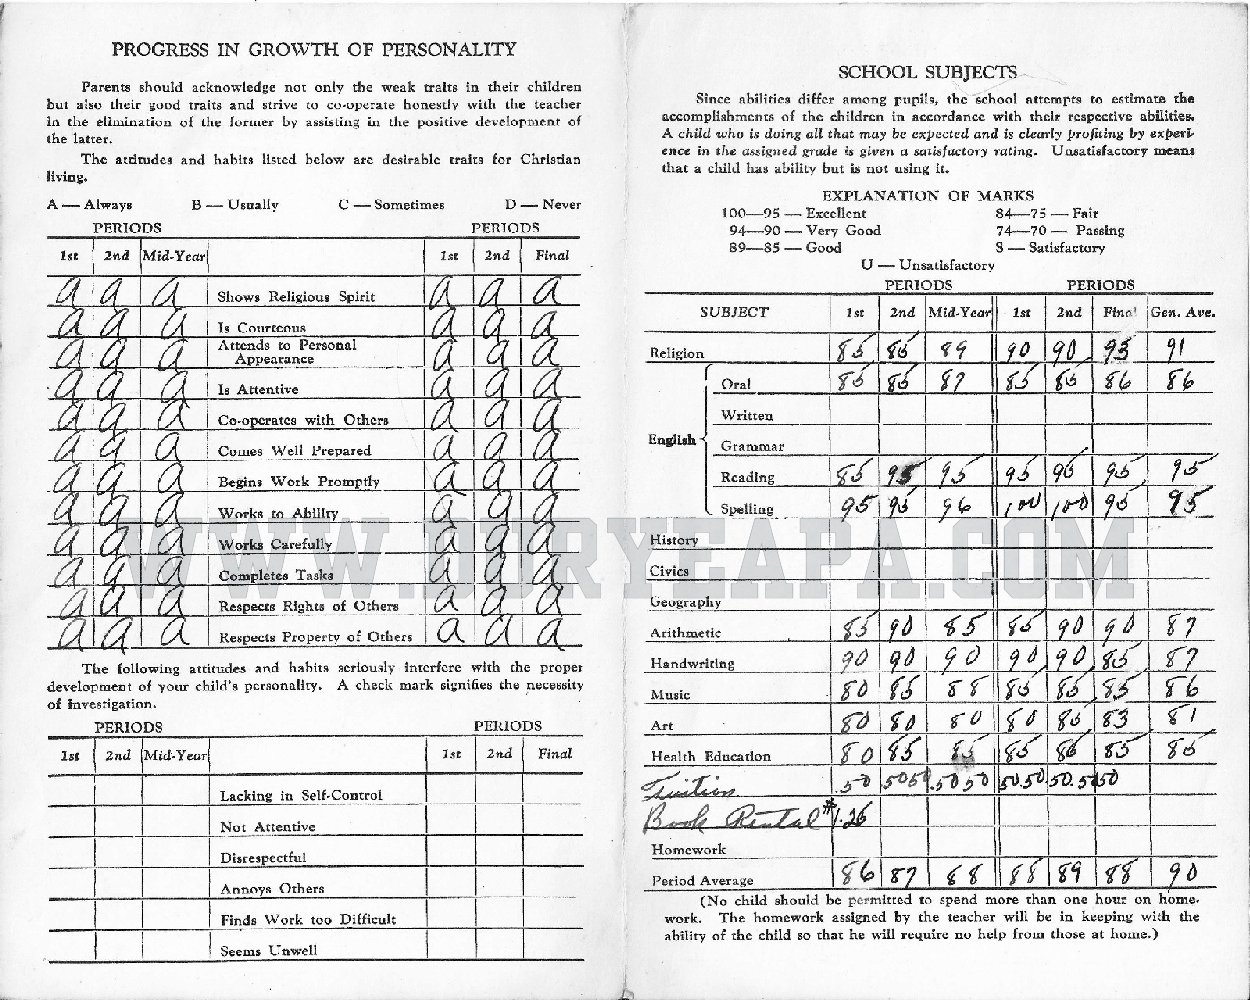 PROGRESS IN GROWTH OF PERSONALITY
Parents should acknowledge not only the weak traits in their children
but also their good traits and strive to co-operate honestly with the teacher
in the elimination of the former by assisting in the positive development of
the latter.
The attitudes and habits listed below are desirable traits for Christian
living.
A — Always B — Usually C — Sometimes D — Never
PERIODS PERIODS
1st 2nd Mid-Year 1st 2nd Final
a a a Shows Religious Spirit a a a
a a a Is Courteous a a a
a a a Attends to Personal Appearance a a a
a a a Is Attentive a a a
a a a Co-operates with Others a a a
a a a Comes Well Prepared a a a
a a a Begins Work Promptly a a a
a a a Works to Ability a a a
a a a Works Carefully a a a
a a a Completes Tasks a a a
a a a Respects Rights of Others a a a
a a a Respects Property of Others a a a
The following attitudes and habits seriously interfere with the proper
development of your child's personality. A check mark signifies the necessity
of investigation.
PERIODS PERIODS
1st 2nd Mid-Year 1st 2nd Final
Lacking in Self-Control
Not Attentive
Disrespectful
Annoys Others
Finds Work too Difficult
Seems Unwell
SCHOOL SUBJECTS
Since abilities differ among pupils, the school attempts to estimate the
accomplishments of the children in accordance with their respective abilities.
A child who is doing all that may be expected and is clearly profiting by experi-
ence in the assigned grade is given a satisfactory rating. Unsatisfactory means
that a child has ability but is not using it.
EXPLANATION OF MARKS
100—95 — Excellent 84—75 — Fair
94—90 — Very Good 74—70 — Passing
89—85 — Good S — Satisfactory
U — Unsatisfactory
PERIODS PERIODS
SUBJECT 1st 2nd Mid-Year 1st 2nd Final Gen. Ave.
Religion 85 85 89 90 90 95 91
Oral 85 85 87 85 85 86 86
Written
English
Grammar
Reading 85 95 95 95 95 95 95
Spelling 95 95 96 100 100 95 95
History
Civics
Geography
Arithmetic 85 90 85 85 90 90 87
Handwriting 90 90 90 90 90 85 87
Music 80 85 88 85 85 85 86
Art 80 80 80 80 85 83 81
Health Education 80 85 85 85 86 85 85
Tuition .50 .50 50 .50 50 50.50 50.50 50
Book Rental #1.26
Homework
Period Average 86 87 88 88 89 88 90
(No child should be permitted to spend more than one hour on home-
work. The homework assigned by the teacher will be in keeping with the
ability of the child so that he will require no help from those at home.)
WWW.DURYEAPA.COM